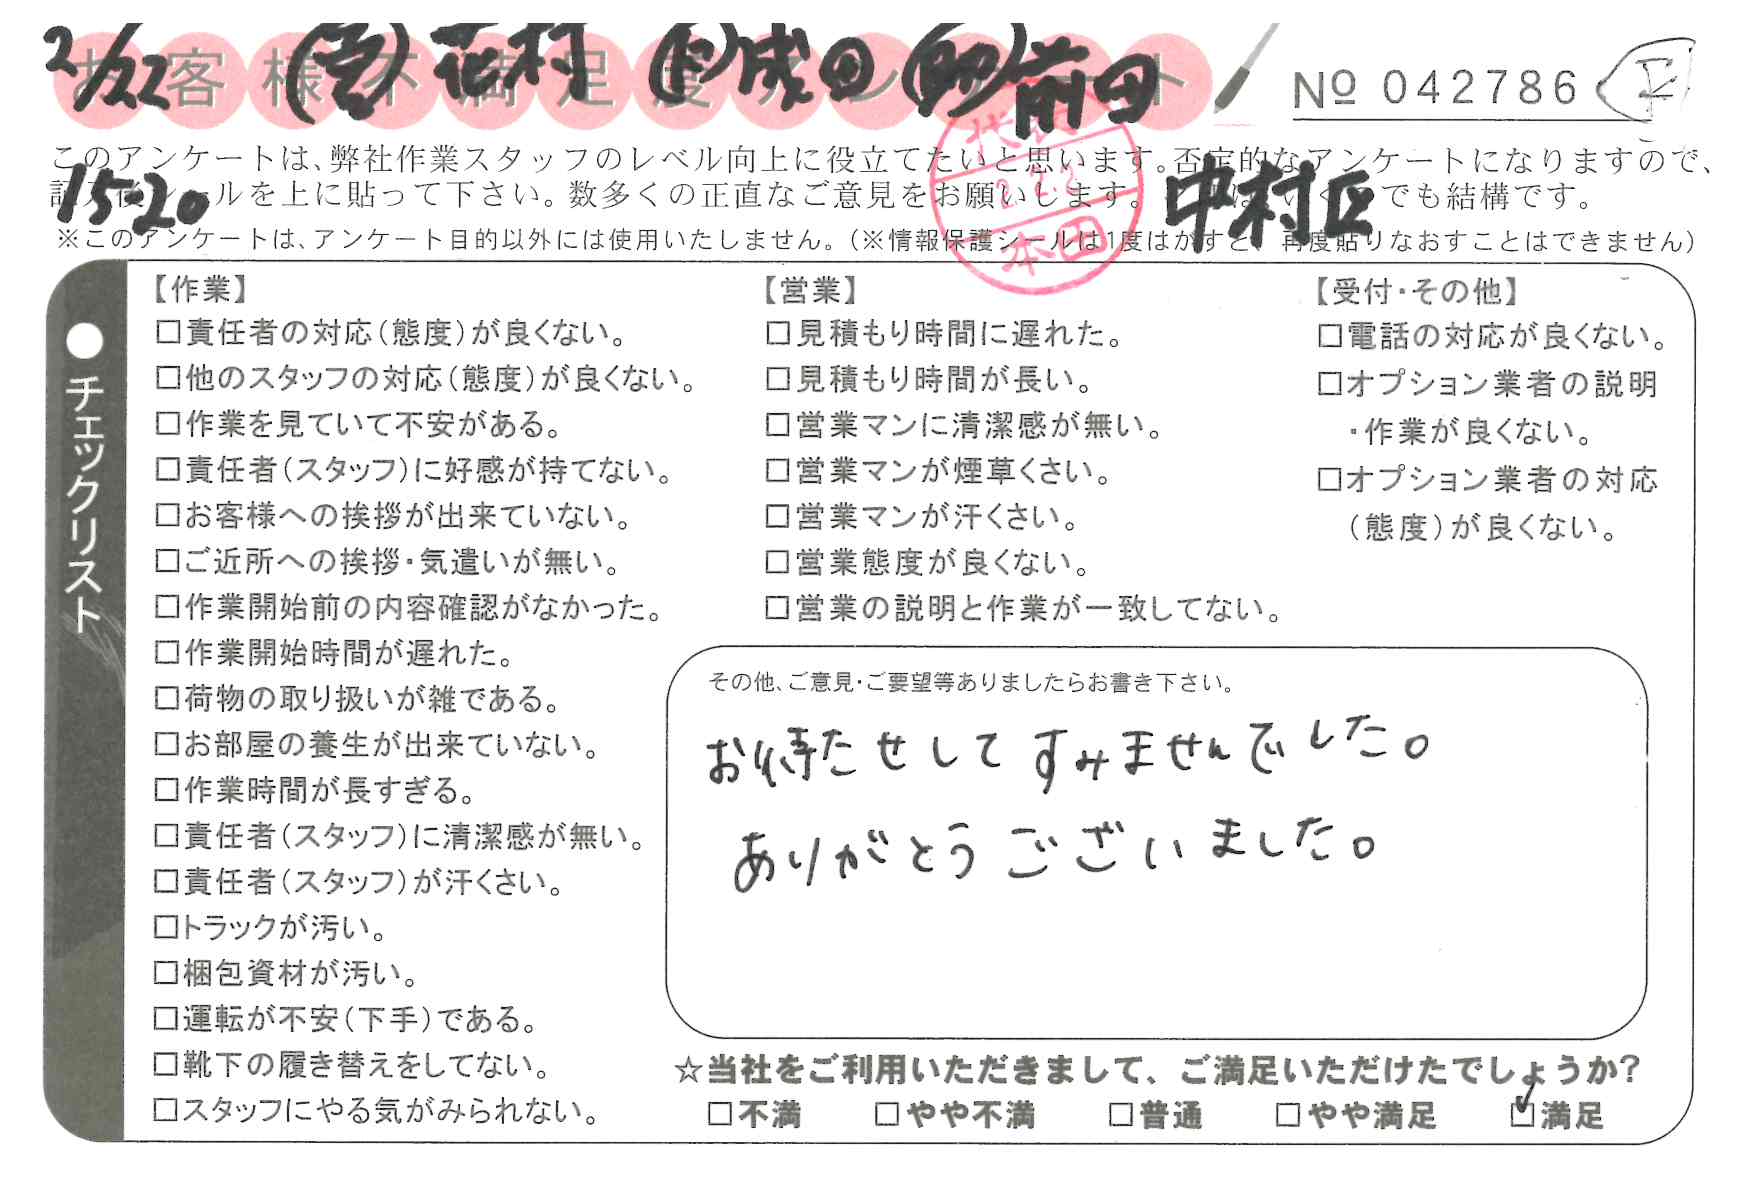 2/22 (営)花村 (作)成田 (助)前田
お客様不満足度アンケート
№ 042786
このアンケートは、弊社作業スタッフのレベル向上に役立てたいと思います。否定的なアンケートになりますので、
15-20 シールを上に貼って下さい。数多くの正直なご意見をお願いします。 中村区 でも結構です。
※このアンケートは、アンケート目的以外には使用いたしません。(※情報保護シールは1度はがすと、再度貼りなおすことはできません)
本田
●チェックリスト
【作業】
□責任者の対応(態度)が良くない。
□他のスタッフの対応(態度)が良くない。
□作業を見ていて不安がある。
□責任者(スタッフ)に好感が持てない。
□お客様への挨拶が出来ていない。
□ご近所への挨拶・気遣いが無い。
□作業開始前の内容確認がなかった。
□作業開始時間が遅れた。
□荷物の取り扱いが雑である。
□お部屋の養生が出来ていない。
□作業時間が長すぎる。
□責任者(スタッフ)に清潔感が無い。
□責任者(スタッフ)が汗くさい。
□トラックが汚い。
□梱包資材が汚い。
□運転が不安(下手)である。
□靴下の履き替えをしてない。
□スタッフにやる気がみられない。
【営業】
□見積もり時間に遅れた。
□見積もり時間が長い。
□営業マンに清潔感が無い。
□営業マンが煙草くさい。
□営業マンが汗くさい。
□営業態度が良くない。
□営業の説明と作業が一致してない。
【受付・その他】
□電話の対応が良くない。
□オプション業者の説明
・作業が良くない。
□オプション業者の対応
(態度)が良くない。
その他、ご意見・ご要望等ありましたらお書き下さい。
お待たせしてすみませんでした。
ありがとうございました。
☆当社をご利用いただきまして、ご満足いただけたでしょうか?
□不満 □やや不満 □普通 □やや満足 ☑満足